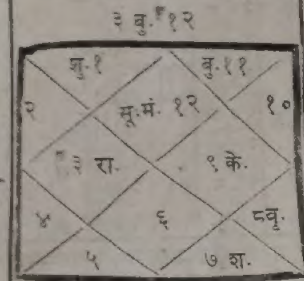 ३ बु. १२
शु. १ बु. ११
२ सू. मं. १२ १०
३ रा. ९ के.
४ ६ ८ वृ.
५ ७ श.